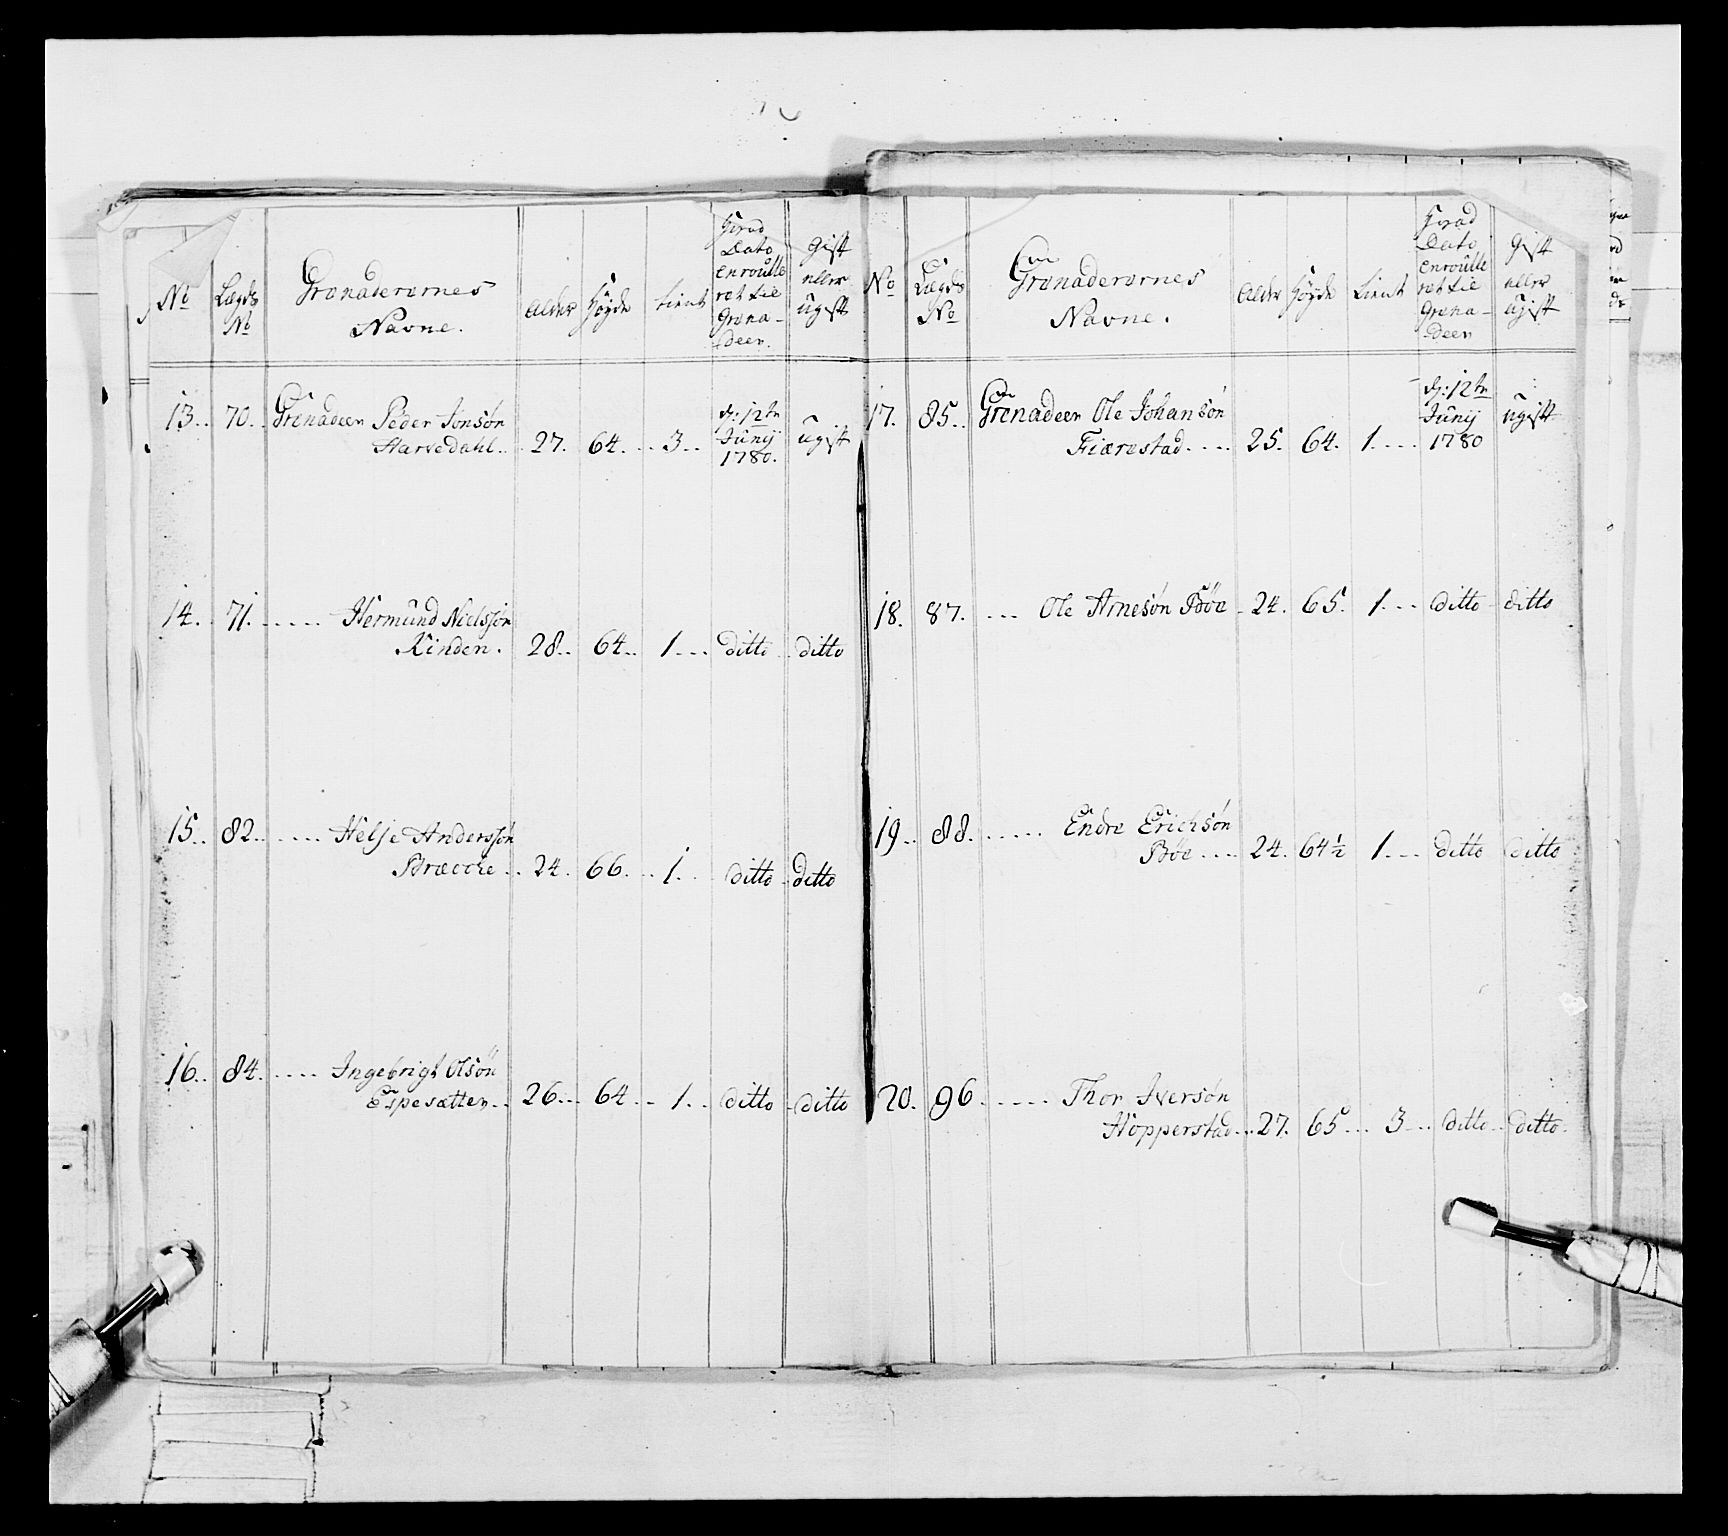 No
Lægds
No
Grenaderernes
Navne.
Alder
Höyde
tient
Hvad
Dato
enroulle
ret til
Grena-
deer.
gift
eller
ugift
13.. 70. Grenadeer Peder Jonsøn
Harvedahl.. 27. 64. .. 3..
d: 12te
Junÿ
1780.
ugift
14. 71. ..... Hermund Nielssøn
Kinden. 28.. 64.. 1... ditto ditto
15.. 82.. .... Helje Anderssøn
Bræcke.. 24. 66. .. 1. ditto ditto
16.. 84. .... Ingebrigt Olsøn
Espesætter.. 26... 64. .. 1.. ditto ditto
No
Lægds
No
Grenaderernes
Navne.
Alder
Höyde
tient
Hvad
Dato
enroulle
ret til
Grena-
deer
gift
eller
ugift
17. 85.. Grenadeer Ole Johansøn
Fiærestad.... 25. 64. 1....
d: 12te
Junÿ
1780
ugift
18. 87. ... Ole Arnesøn Böe. 24. 65. 1... ditto ditto
19.. 88. ..... Endre Erichsøn
Böe.... 24. 64½ 1... ditto ditto
20. 96. ..... Thor Iversøn
Hopperstad... 27. 65... 3... ditto.. ditto.